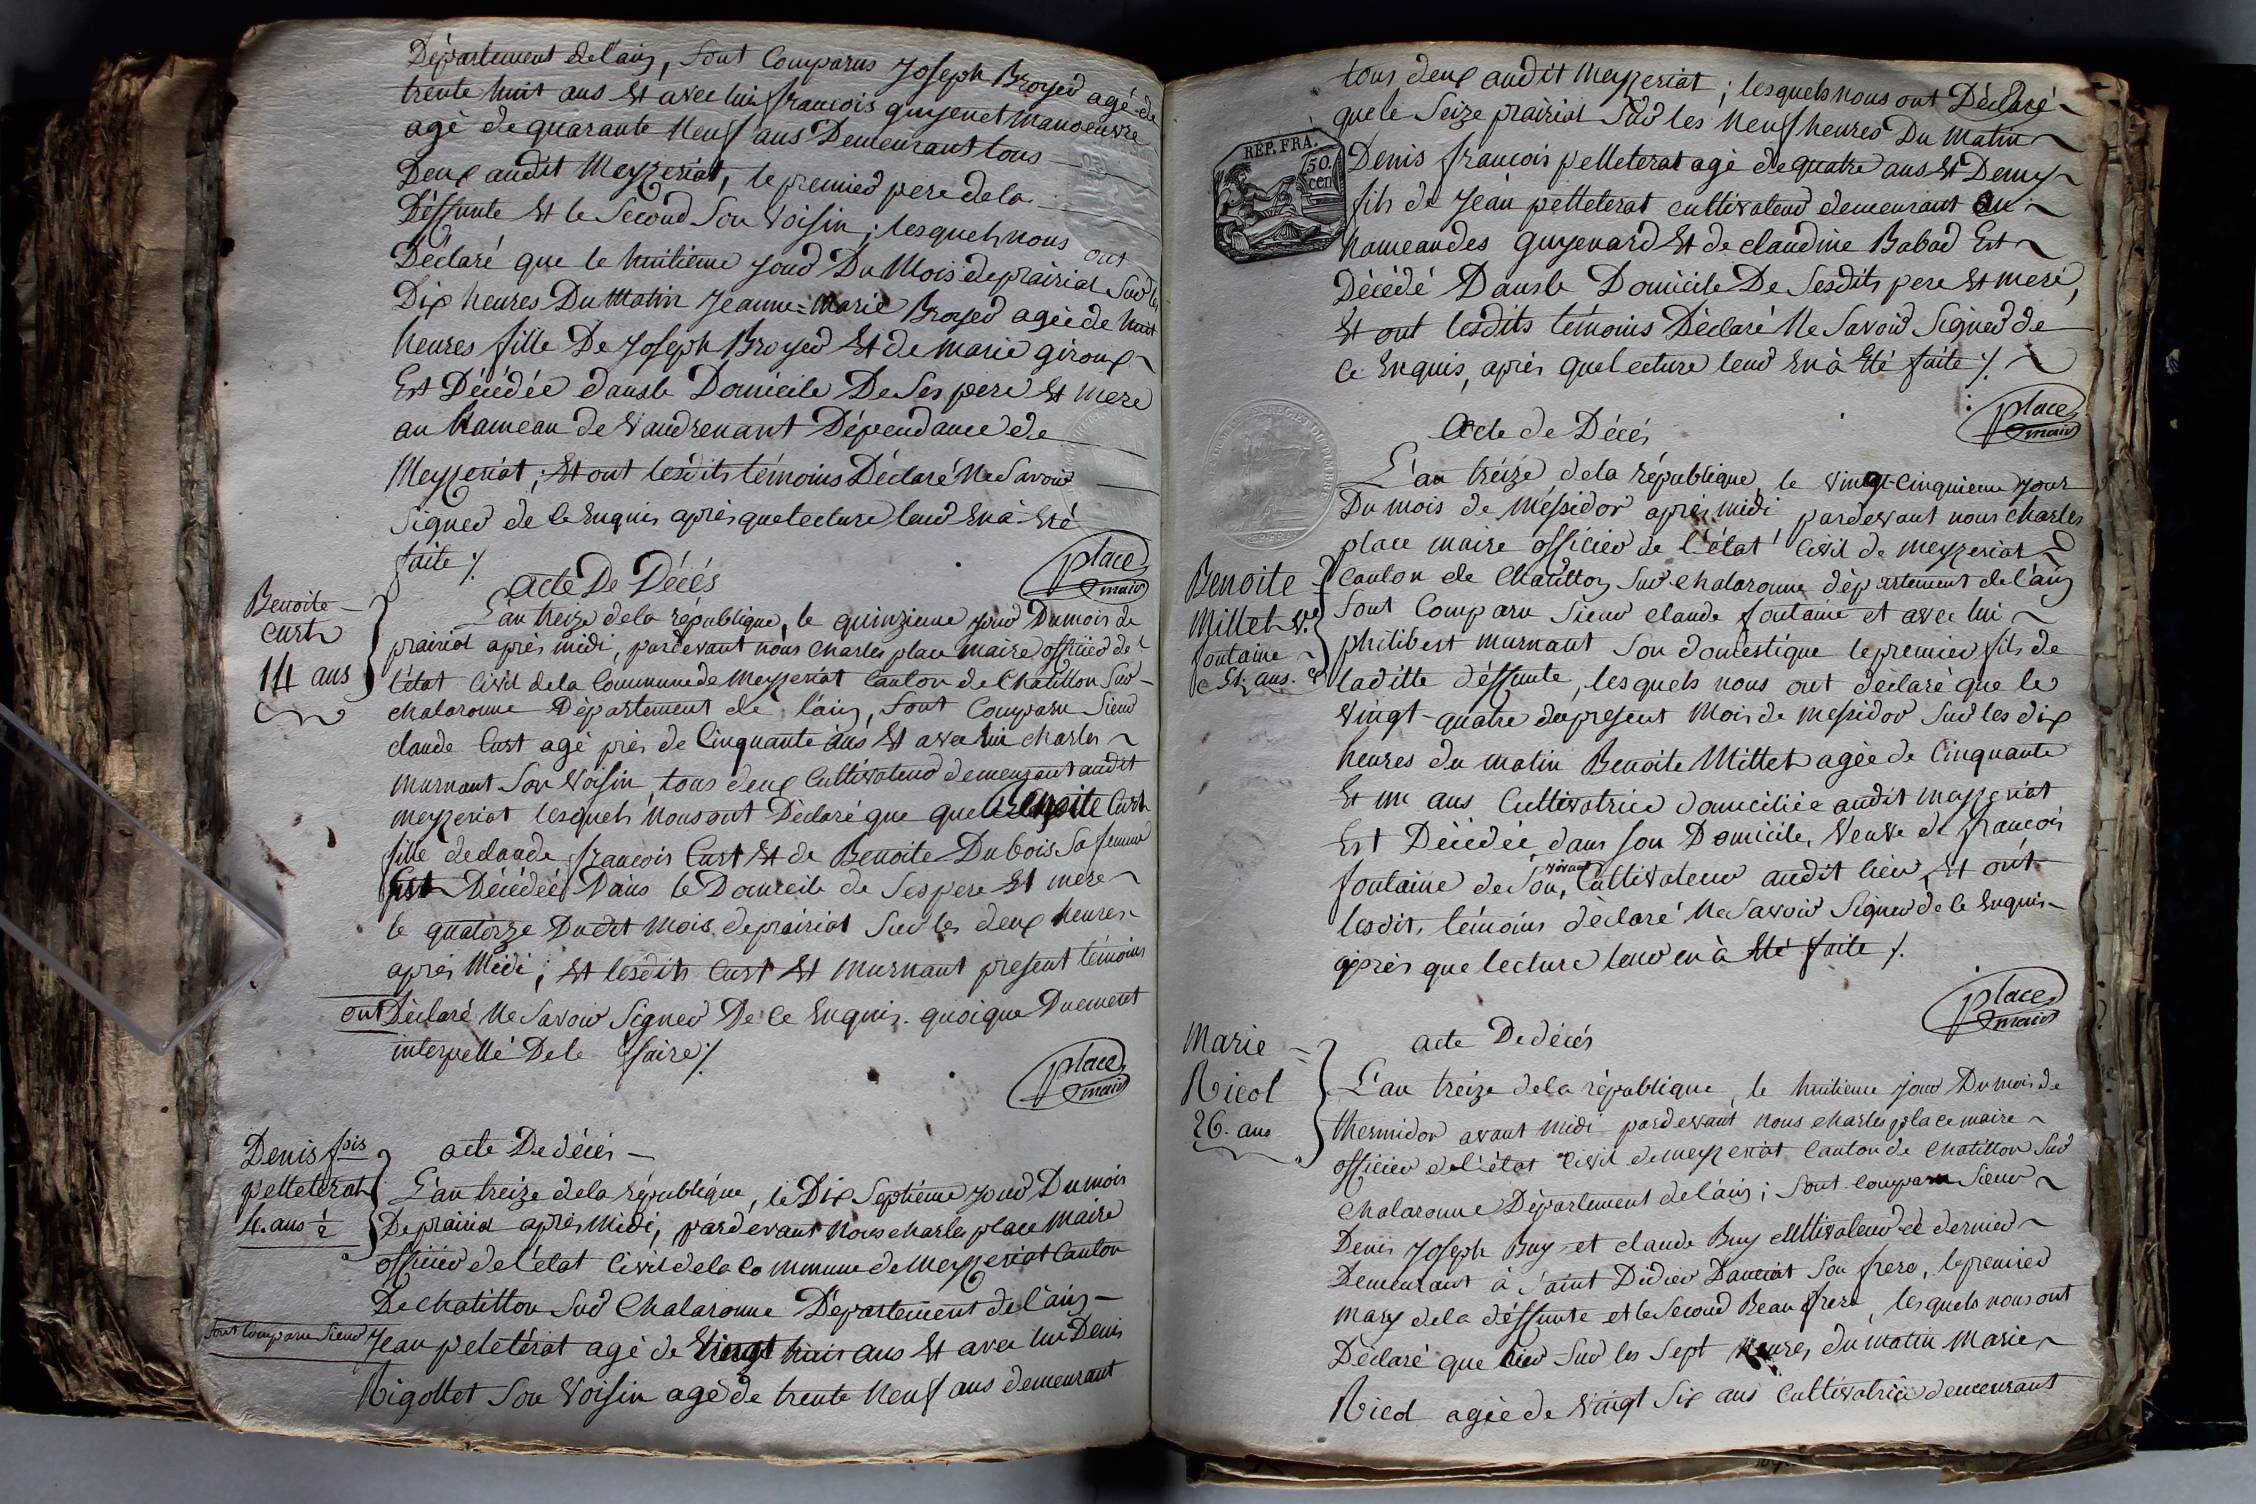 Département de l'ain, sont Comparus Joseph Broyer agé de
trente huit ans Et avec lui francois guyenet manoeuvre
agé de quarante Neuf ans Demeurant tous
Deux audit Meyzeriat, le premier pere de la
Déffunte Et le Second Son Voisin; lesquels nous ont
Déclaré que le huitième jour Du Mois de prairial Sur les
Dix heures Du Matin Jeanne-Marie Broyer agée de huit
heures fille De Joseph Broyer Et de Marie giroux
Est Décédée dans le Domicile De Ses pere Et Mere
au hameau de Vaudrenant Dépendance de
Meyzeriat; Et ont lesdits témoins Déclaré Ne Savoir
Signer de Ce Enquis après que lecture leur En à Eté
faite ⁒
place
maire
Benoite
Curt
14 ans
acte De Décés
L'an treize de la république, le quinzieme jour Du mois de
prairial après midi, pardevant nous charles place Maire officier de
l'état Civil de la Commune de Meyzeriat Canton de Chatillon Sur
chalaronne Département de l'ain, sont Comparu Sieur
claude Curt agé près de Cinquante ans Et avec lui charles
Murnant Son Voisin, tous deux Cultivateur demeurant audit
meyzeriat lesquels Nous ont Déclaré que que Benoite Curt
fille de claude francois Curt Et de Benoite Dubois Sa femme
Est Décédée Dans le Domicile de Ses pere Et mere
le quatorze Dudit Mois de prairial Sur les deux heures
après Midi; Et lesdits Curt Et Murnant présent témoins
ont Déclaré Ne Savoir Signer De Ce Enquis. quoique Duement
interpellé De le faire ⁒
place
maire
Denis fois
pelleterat
4. ans ½
acte De décés
L'an treize de la république, le Dix Septième jour Du mois
De prairial après Midi, pardevant Nous charles place Maire
officier de l'état Civil de la Commune de Meyzeriat Canton
De chatillon Sur Chalaronne Département de l'ain
sont comparu Sieur Jean peletérat agé de Vingt huit ans Et avec lui Denis
Rigollet Son Voisin agé de trente Neuf ans demeurant
tous deux audit Meyzeriat; lesquels nous ont Déclaré
que le Seize prairial Sur les Neuf heures Du Matin
Denis francois pelleterat agé de quatre ans Et Demy
fils de Jean pelleterat cultivateur demeurant au
hameau des guyenard Et de claudine Babad Est
Décédé Dans le Domicile De Sesdits pere Et mere,
Et ont lesdits témoins Déclaré Ne Savoir Signer de
Ce Enquis, après que lecture leur En à Eté faite ⁒
REP. FRA.
50.
cen
place
maire
Acte de Décés
Benoite
Millet Ve
fontaine
51 ans.
L'an treize de la république, le vingt-Cinquieme jour
Du mois de Méssidor après midi pardevant nous charles
place maire officier de l'état Civil de meyzeriat
Canton de Chatillon Sur chalaronne département de l'ain
Sont Comparu Sieur claude fontaine et avec lui
philibert Murnant Son domestique le premier fils de
laditte déffunte, lesquels nous ont déclaré que le
Vingt-quatre du present Mois de messidor Sur les dix
heures du matin Benoite Millet agée de Cinquante
Et un ans Cultivatrice domiciliée audit meyzeriat
Est Décédée dans son Domicile, Veuve de francois
fontaine de Son vivant Cultivateur audit lieu, Et ont
lesdits témoins déclaré Ne Savoir Signer de Ce Enquis
après que lecture leur en à Eté faite ⁒
place
maire
Marie
Nicol
26. ans
acte De décés
L'an treize de la république, le huitieme jour Du mois de
thermidor avant midi pardevant nous charles place maire
officier de l'état Civil de meyzeriat Canton de Chatillon Sur
Chalaronne Département de l'ain; Sont comparu Sieur
Denis Joseph Buy et claude Buy cultivateur ce dernier
Demeurant à Saint Didier Son frere, le premier
mary de la déffunte et le Second Beau frere, lesquels nous ont
Déclaré que hier Sur les Sept heures du Matin Marie
Nicol agée de Vingt Six ans Cultivatrice demeurant